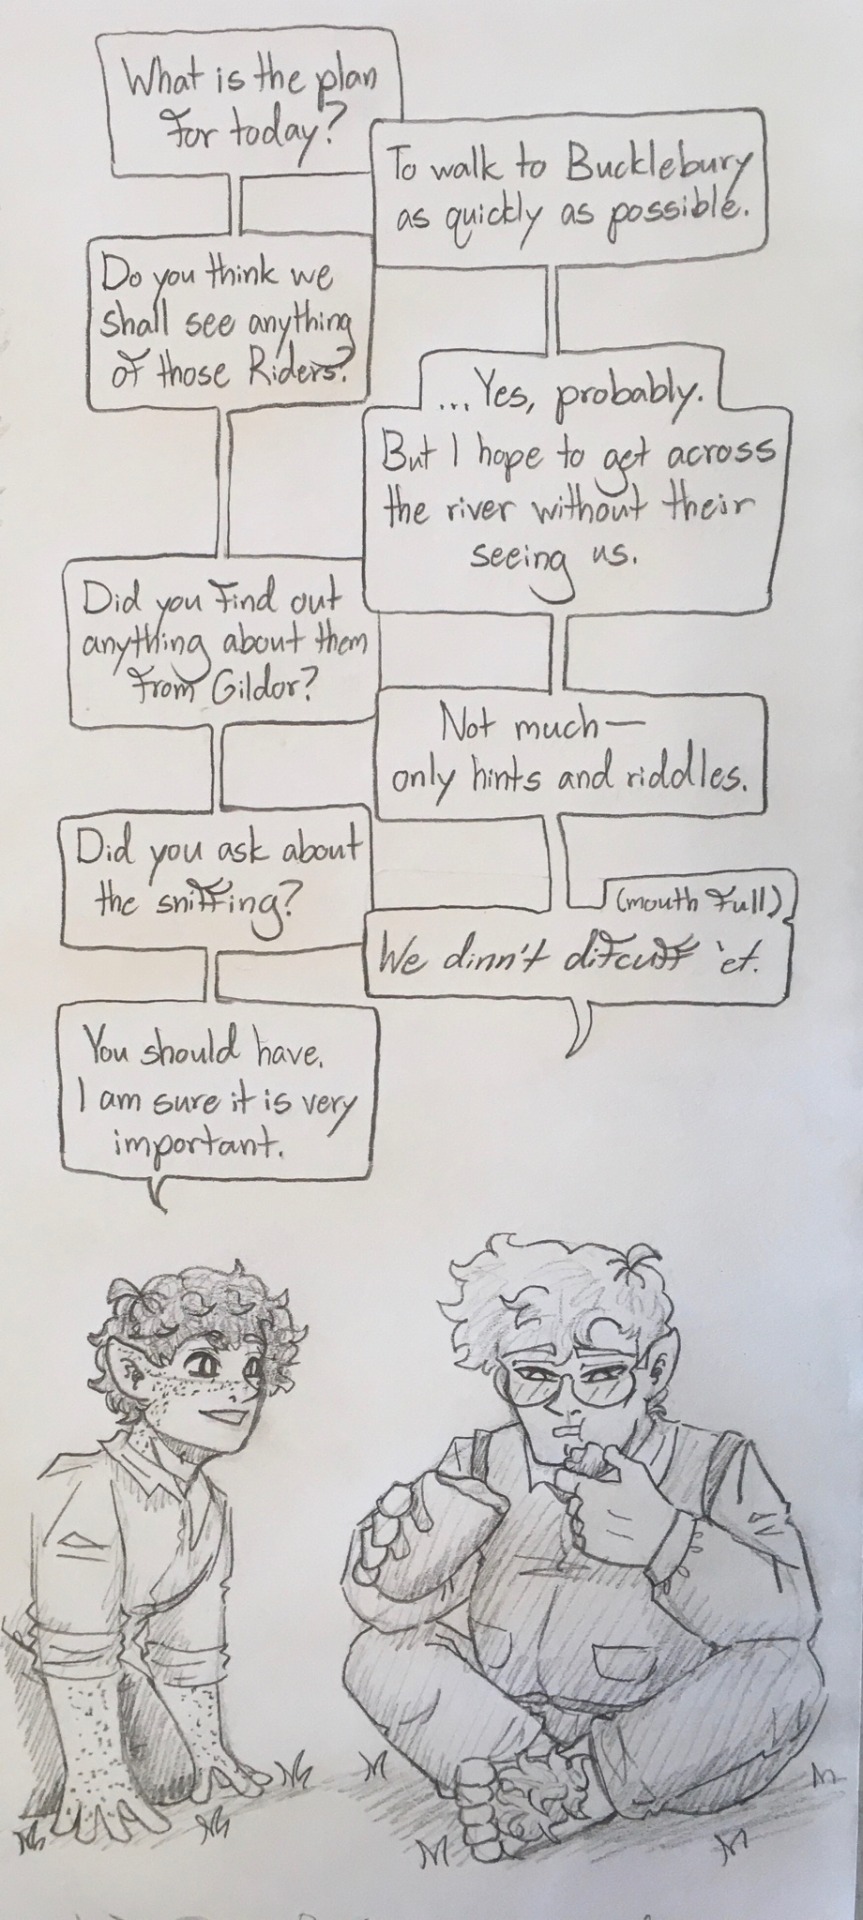 What is the plan
for today?
To walk to Bucklebury
as quickly as possible.
Do you think we
shall see anything
of those Riders?
...Yes, probably.
But I hope to get across
the river without their
seeing us.
Did you find out
anything about them
from Gildor?
Not much—
only hints and riddles.
Did you ask about
the sniffing?
(mouth full)
We dinn't difcuff 'et.
You should have.
I am sure it is very
important.